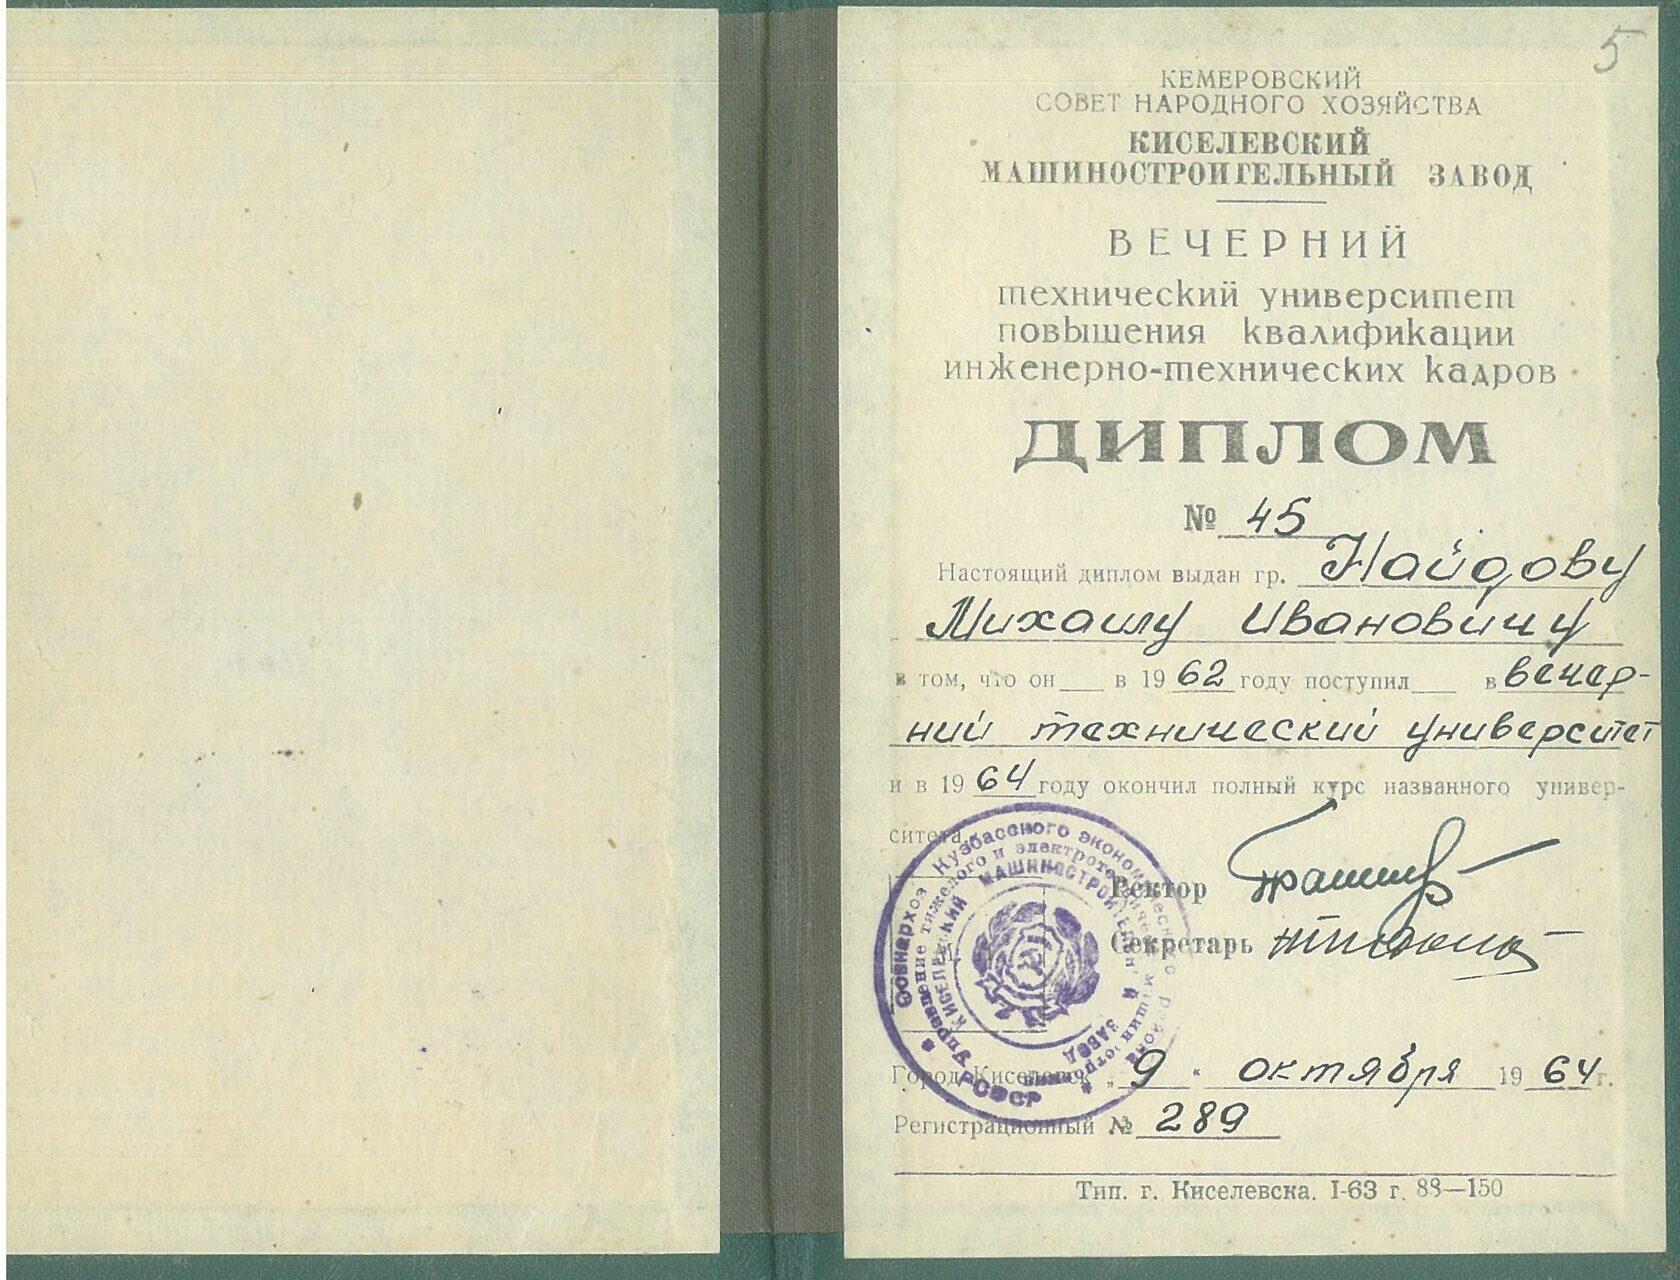 5
КЕМЕРОВСКИЙ
СОВЕТ НАРОДНОГО ХОЗЯЙСТВА
КИСЕЛЕВСКИЙ
МАШИНОСТРОИТЕЛЬНЫЙ ЗАВОД
ВЕЧЕРНИЙ
технический университет
повышения квалификации
инженерно-технических кадров
ДИПЛОМ
№ 45
Настоящий диплом выдан гр. Найдову
Михаилу Ивановичу
в том, что он в 1962 году поступил в вечер-
ний технический университет
и в 1964 году окончил полный курс названного универ-
ситета.
Ректор
Секретарь
Совнархоз Кузбасского экономического района
Управление тяжелого и электротехнического машиностроения
КИСЕЛЕВСКИЙ МАШИНОСТРОИТЕЛЬНЫЙ ЗАВОД
РСФСР
Город Киселевск „ 9 “ октября 1964 г.
Регистрационный № 289
Тип. г. Киселевска. I-63 г. 88—150